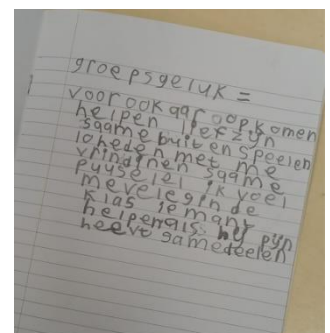 groepsgeluk =
voor ookaar oopkomen
helpen lief zijn
saame buiten speelen
lohedenmet me
vrindinen saame
puuselel ik voel
mevelegin de
klas iemant
helpenals hij pijn
heevt samedeelen